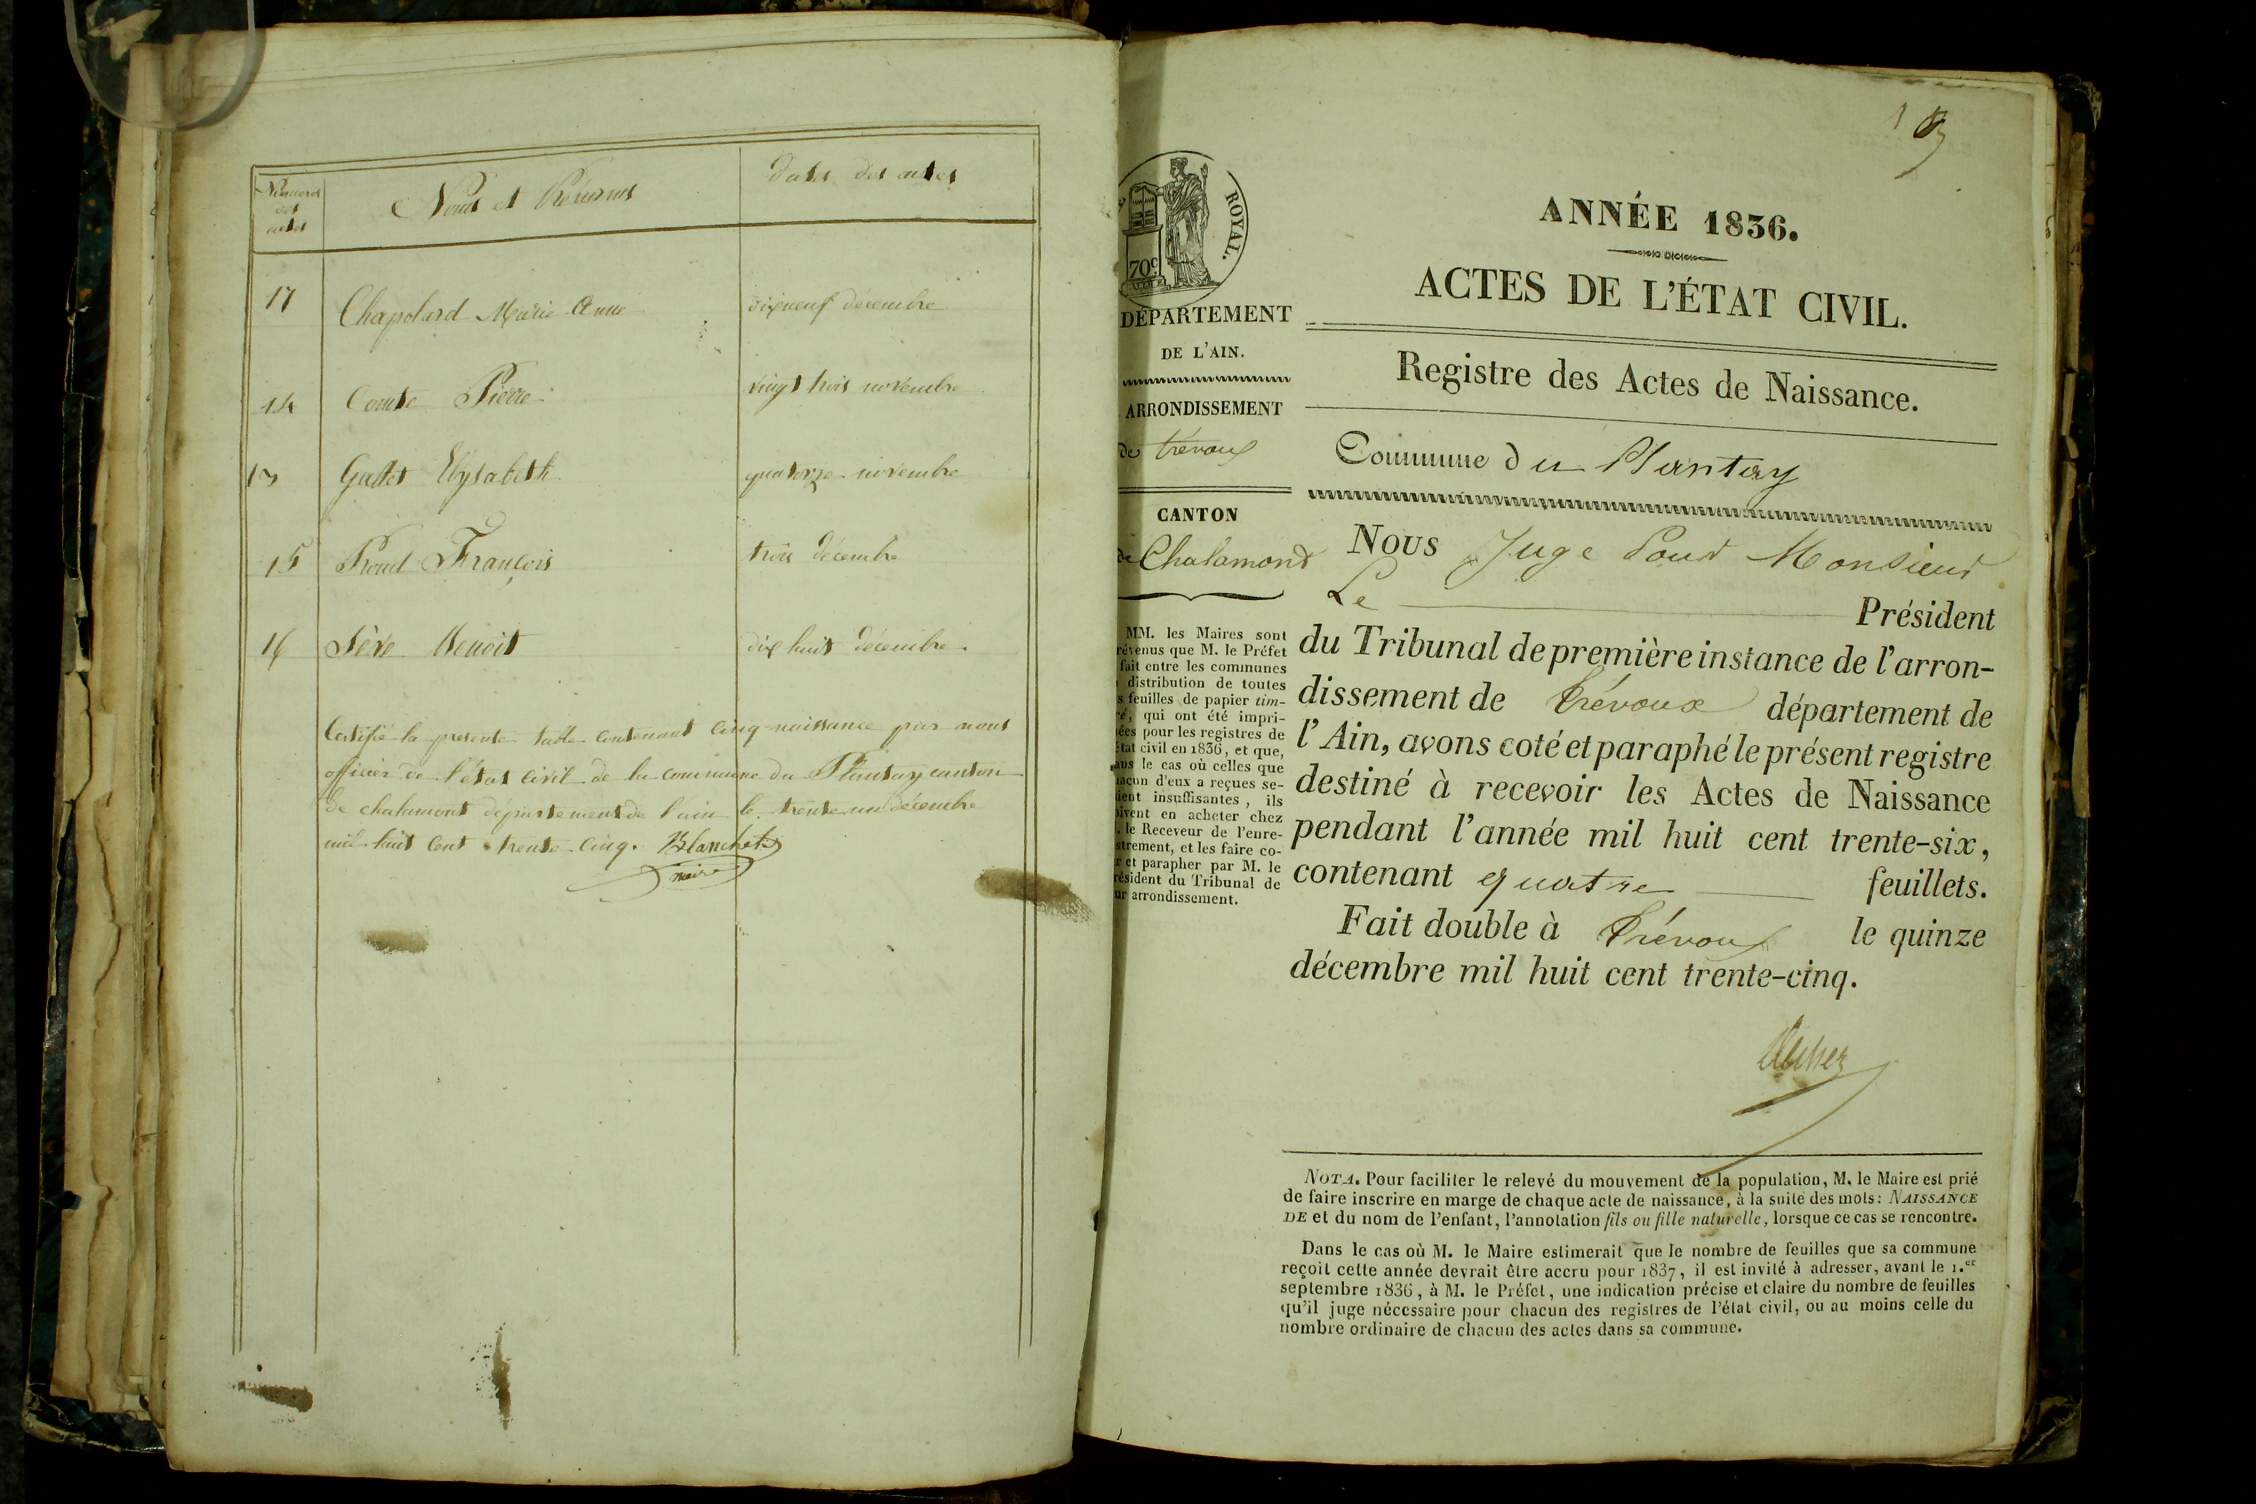 Numeros des actes
Noms et Prénoms
Dates des actes
17 Chapolard Marie Anne dixneuf décembre
14 Comte Pierre vingt trois novembre
13 Gallet Elysabeth quatorze novembre
15 Proud François trois décembre
16 Sève Benoit dix huit décembre
Certifié la presente table contenant cinq naissance par nous
officier de l'état civil de la commune du Plantay canton
de chalamont département de l'ain le trente un décembre
mil huit cent trente cinq. Blanchet
maire
ROYAL.
70c
DÉPARTEMENT
DE L'AIN.
ARRONDISSEMENT
de trévoux
CANTON
de Chalamont
MM. les Maires sont
prévenus que M. le Préfet
fait entre les communes
distribution de toutes
feuilles de papier tim-
bré, qui ont été impri-
mées pour les registres de
l'état civil en 1836, et que,
dans le cas où celles que
chacun d'eux a reçues se-
raient insuffisantes, ils
doivent en acheter chez
M. le Receveur de l'enre-
gistrement, et les faire co-
ter et parapher par M. le
Président du Tribunal de
leur arrondissement.
ANNÉE 1836.
ACTES DE L'ÉTAT CIVIL.
Registre des Actes de Naissance.
Commune du Plantay
NOUS Juge Pour Monsieur
Le Président
du Tribunal de première instance de l'arron-
dissement de Trévoux département de
l'Ain, avons coté et paraphé le présent registre
destiné à recevoir les Actes de Naissance
pendant l'année mil huit cent trente-six,
contenant quatre feuillets.
Fait double à Trévoux le quinze
décembre mil huit cent trente-cinq.
NOTA. Pour faciliter le relevé du mouvement de la population, M. le Maire est prié
de faire inscrire en marge de chaque acte de naissance, à la suite des mots: NAISSANCE
DE et du nom de l'enfant, l'annotation fils ou fille naturelle, lorsque ce cas se rencontre.
Dans le cas où M. le Maire estimerait que le nombre de feuilles que sa commune
reçoit cette année devrait être accru pour 1837, il est invité à adresser, avant le 1.er
septembre 1836, à M. le Préfet, une indication précise et claire du nombre de feuilles
qu'il juge nécessaire pour chacun des registres de l'état civil, ou au moins celle du
nombre ordinaire de chacun des actes dans sa commune.